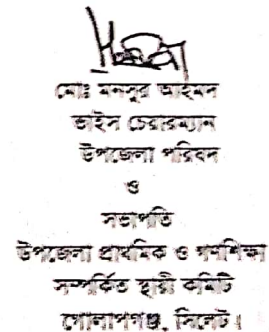 মোঃ মনসুর আহমদ
ভাইস চেয়ারম্যান
উপজেলা পরিষদ
ও
সভাপতি
উপজেলা প্রাথমিক ও গণশিক্ষা
সম্পর্কিত স্থায়ী কমিটি
গোলাপগঞ্জ, সিলেট।